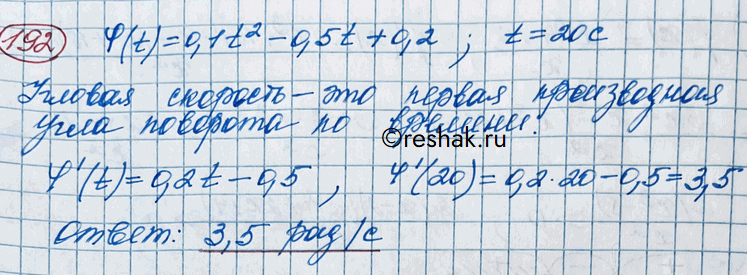 192 φ(t)=0,1t²-0,5t+0,2; t=20с
Угловая скорость - это первая производная
угла поворота по времени.
©reshak.ru
φ'(t)=0,2t-0,5, φ'(20)=0,2·20-0,5=3,5
Ответ: 3,5 рад/с